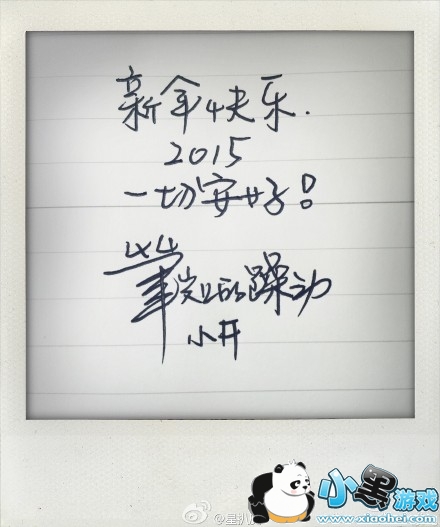 新年快乐.
2015
一切安好!
躁动
小开
@星扒
小黑游戏
www.xiaohei.com